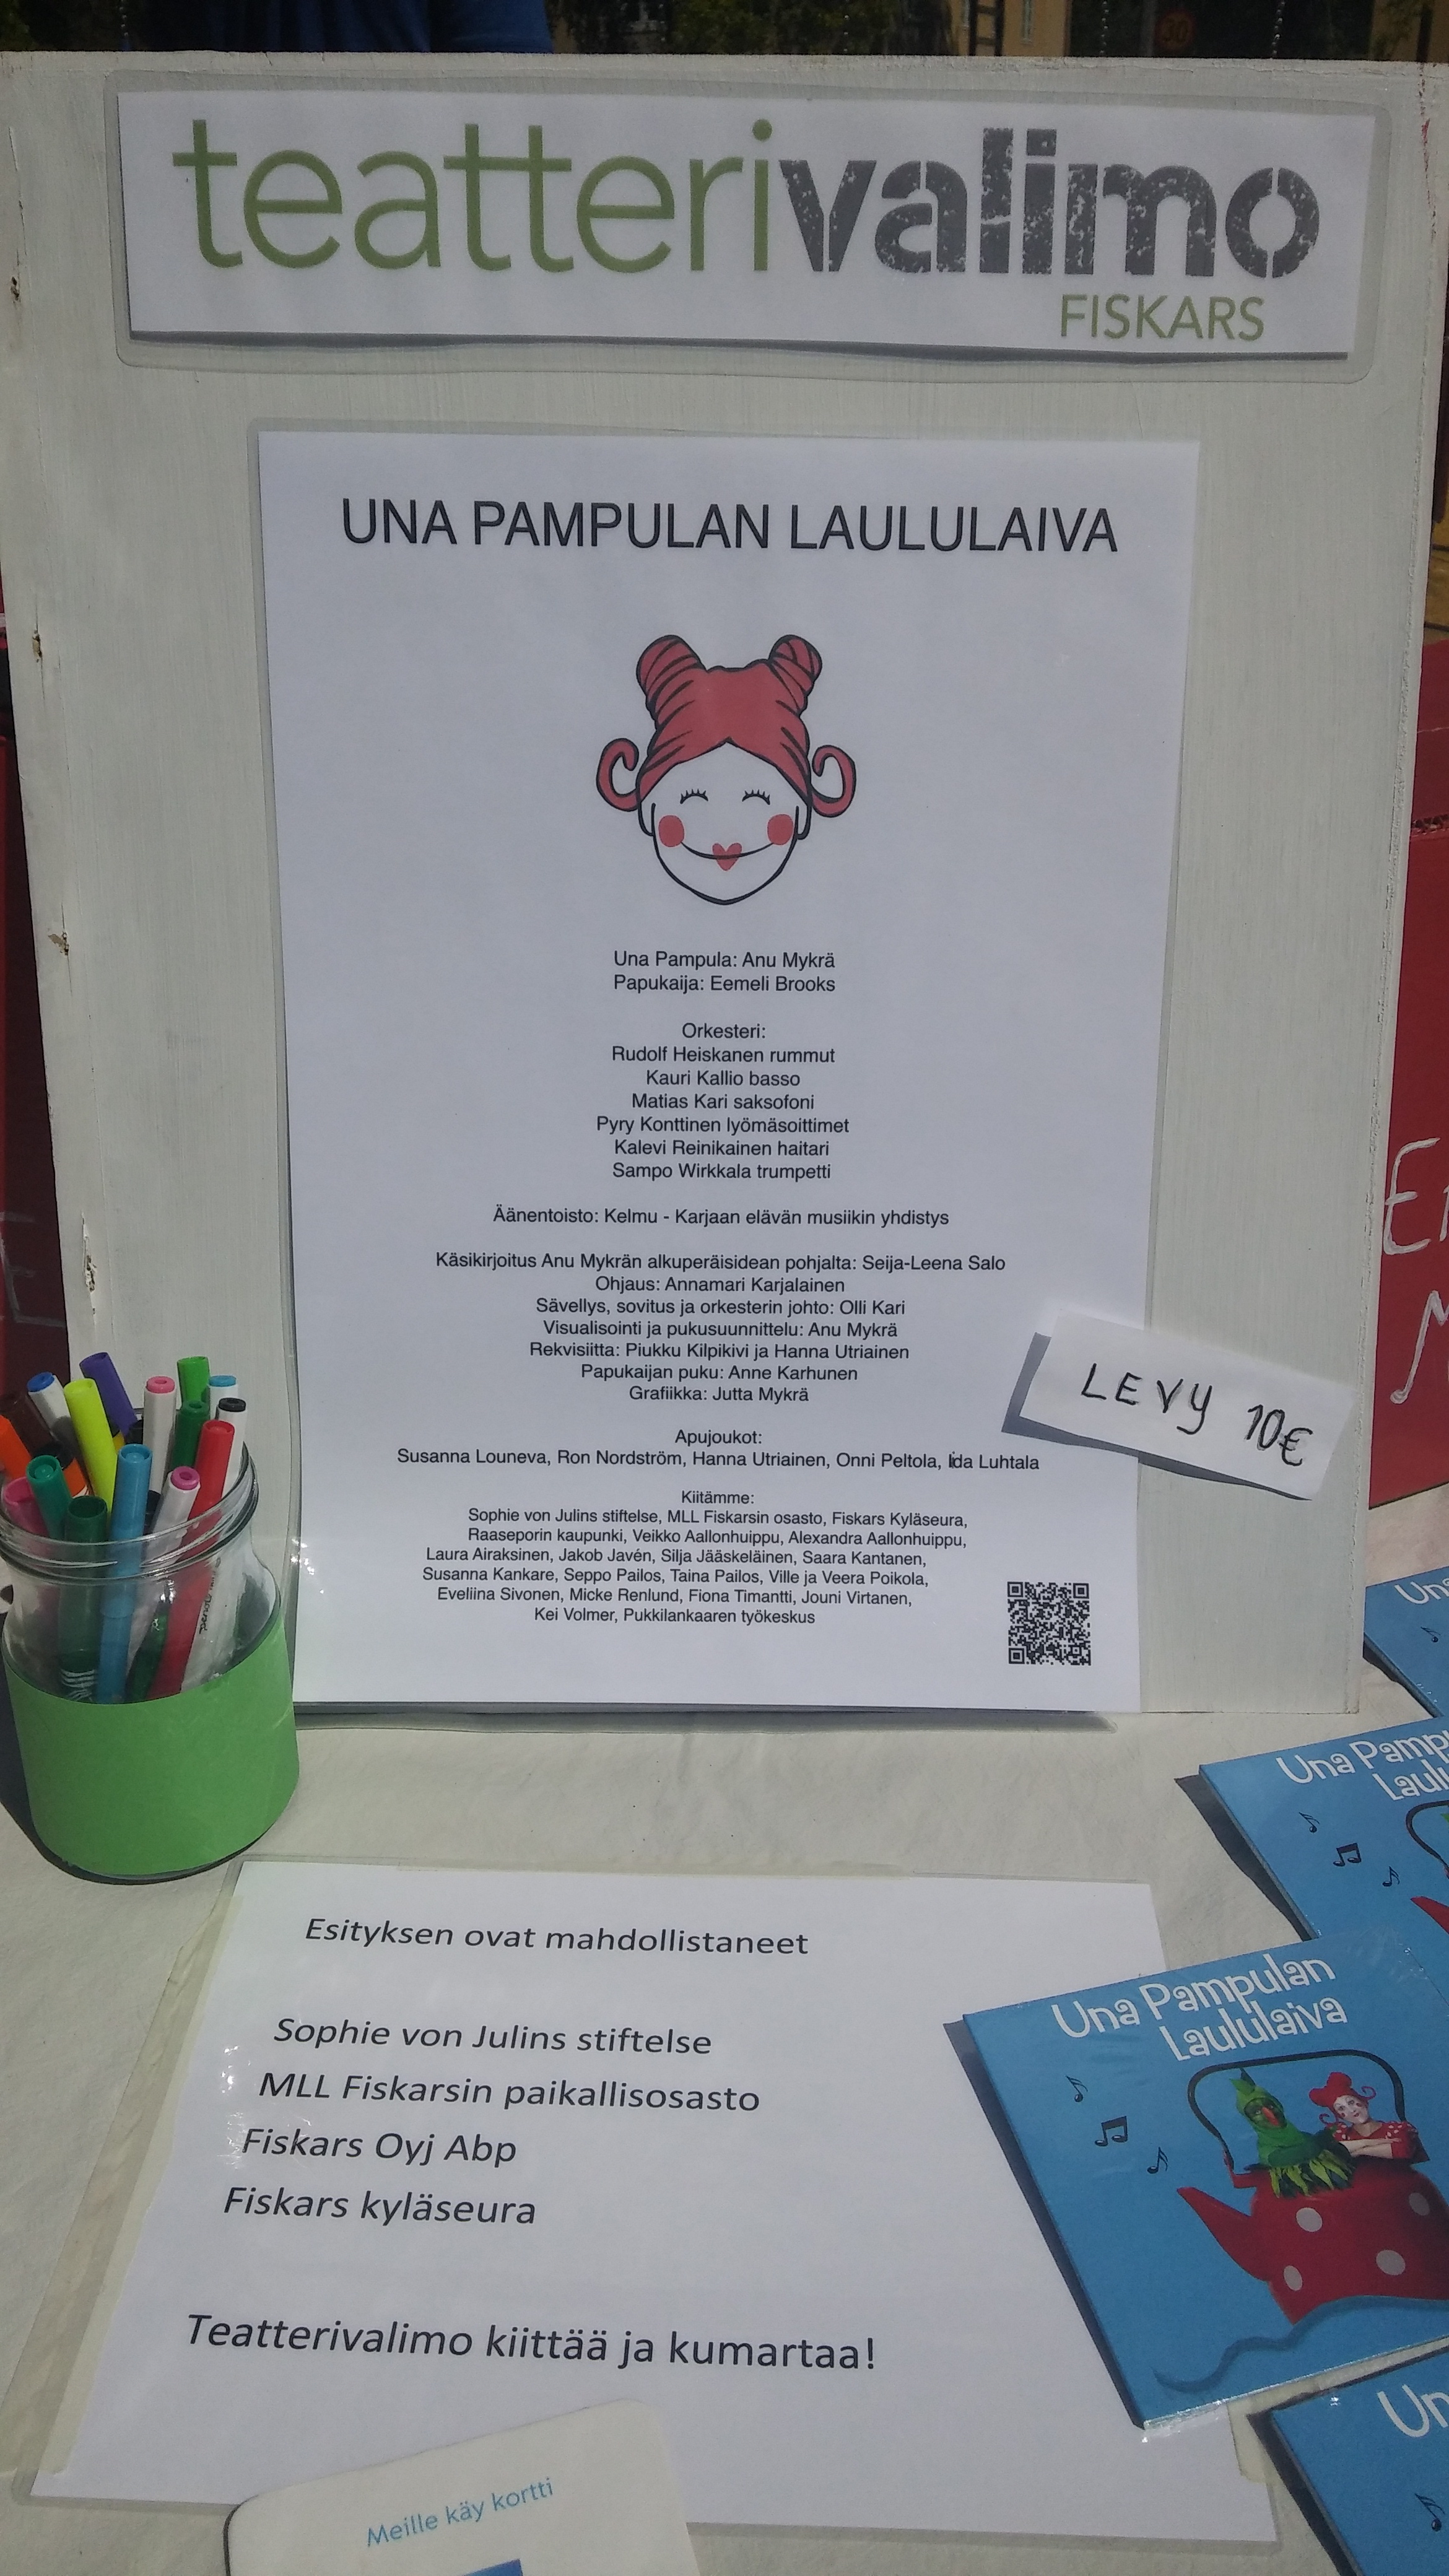 teatterivalimo
FISKARS
UNA PAMPULAN LAULULAIVA
Una Pampula: Anu Mykrä
Papukaija: Eemeli Brooks
Orkesteri:
Rudolf Heiskanen rummut
Kauri Kallio basso
Matias Kari saksofoni
Pyry Konttinen lyömäsoittimet
Kalevi Reinikainen haitari
Sampo Wirkkala trumpetti
Äänentoisto: Kelmu - Karjaan elävän musiikin yhdistys
Käsikirjoitus Anu Mykrän alkuperäisidean pohjalta: Seija-Leena Salo
Ohjaus: Annamari Karjalainen
Sävellys, sovitus ja orkesterin johto: Olli Kari
Visualisointi ja pukusuunnittelu: Anu Mykrä
Rekvisiitta: Piukku Kilpikivi ja Hanna Utriainen
Papukaijan puku: Anne Karhunen
Grafiikka: Jutta Mykrä
Apujoukot:
Susanna Louneva, Ron Nordström, Hanna Utriainen, Onni Peltola, Iida Luhtala
Kiitämme:
Sophie von Julins stiftelse, MLL Fiskarsin osasto, Fiskars Kyläseura,
Raaseporin kaupunki, Veikko Aallonhuippu, Alexandra Aallonhuippu,
Laura Airaksinen, Jakob Javén, Silja Jääskeläinen, Saara Kantanen,
Susanna Kankare, Seppo Pailos, Taina Pailos, Ville ja Veera Poikola,
Eveliina Sivonen, Micke Renlund, Fiona Timantti, Jouni Virtanen,
Kei Volmer, Pukkilankaaren työkeskus
LEVY 10€
Esityksen ovat mahdollistaneet
Sophie von Julins stiftelse
MLL Fiskarsin paikallisosasto
Fiskars Oyj Abp
Fiskars kyläseura
Teatterivalimo kiittää ja kumartaa!
Meille käy kortti
Una
Una Pampu
Laulu
Una Pampulan
Laululaiva
Un